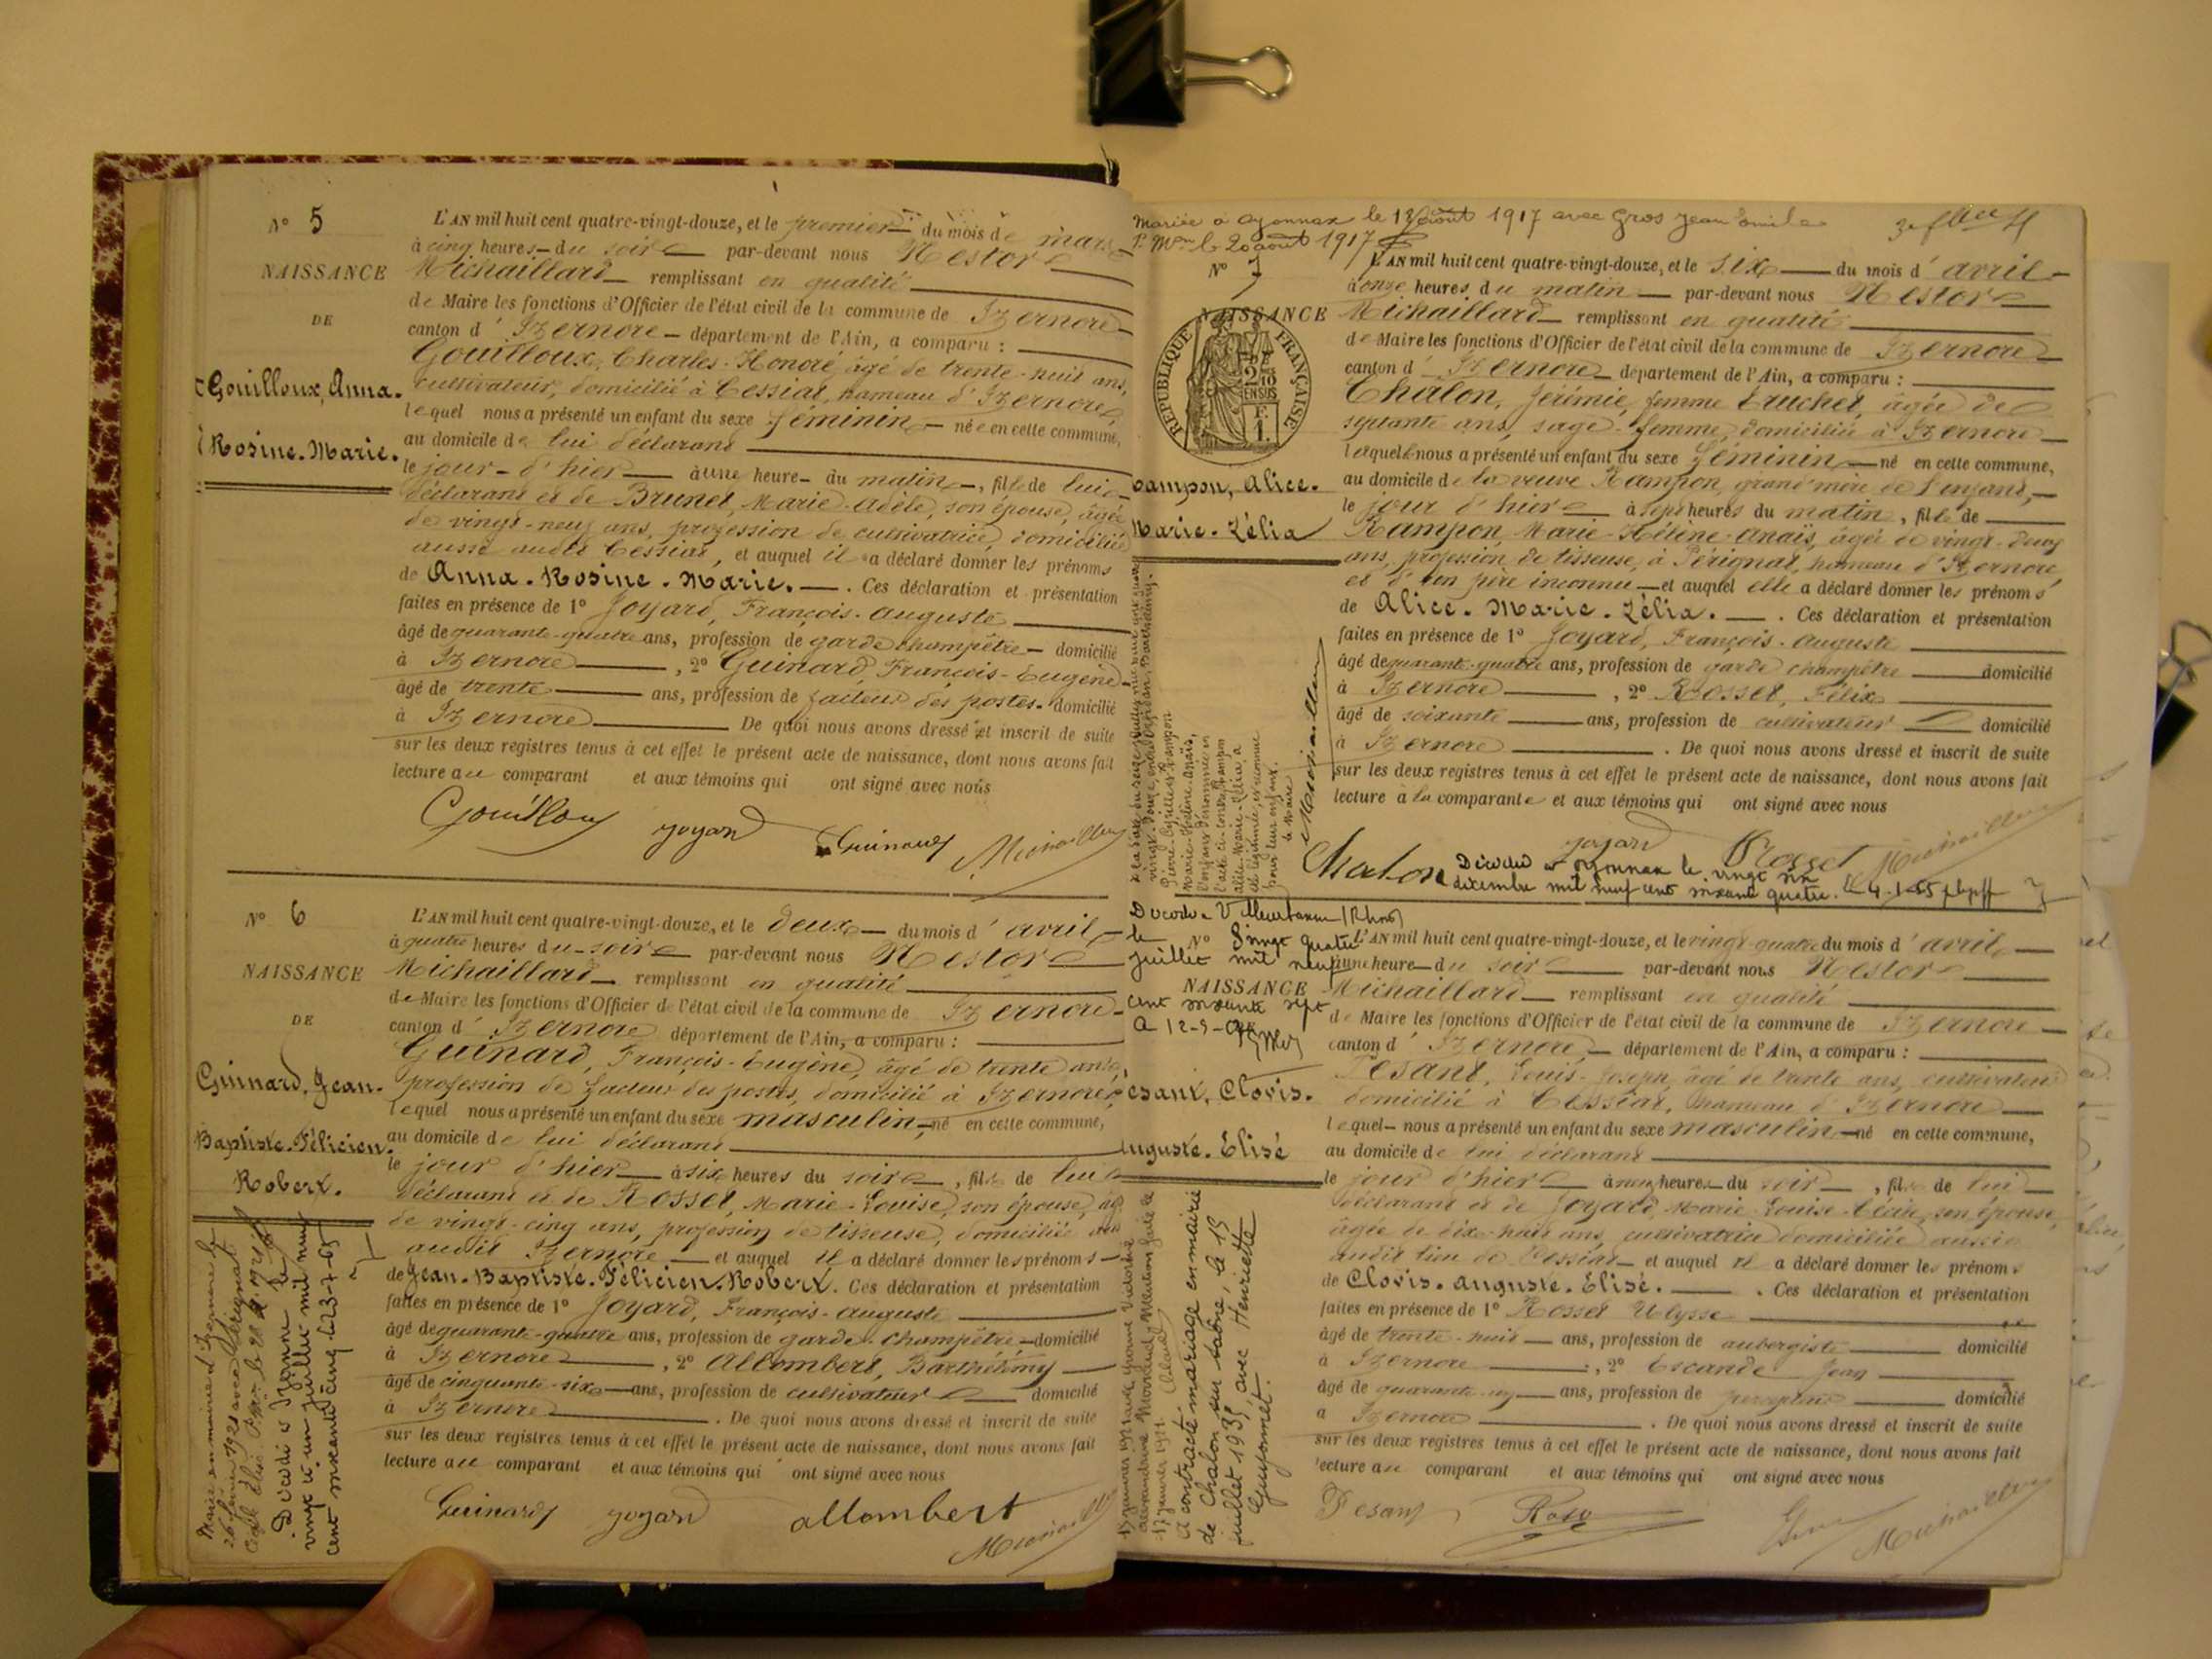 N° 5
NAISSANCE
DE
Gouilloux, Anna.
Rosine. Marie.
L'AN mil huit cent quatre-vingt-douze, et le premier du mois de mars
à cinq heures du soir par-devant nous Nestor
Michaillard remplissant en qualité
de Maire les fonctions d'Officier de l'état civil de la commune de Izernore
canton d'Izernore département de l'Ain, a comparu :
Gouilloux, Charles-Honoré, âgé de trente-huit ans,
cultivateur, domicilié à Cessiat, hameau d'Izernore
lequel nous a présenté un enfant du sexe féminin née en cette commune,
au domicile de lui déclarant
le jour d'hier à une heure du matin, fille de lui
déclarant et de Brunet, Marie-Adèle, son épouse, âgée
de vingt-neuf ans, profession de cultivatrice, domiciliée
aussi audit Cessiat, et auquel il a déclaré donner les prénoms
de Anna. Rosine. Marie. Ces déclaration et présentation
faites en présence de 1° Joyard, François-Auguste
âgé de quarante-quatre ans, profession de garde champêtre domicilié
à Izernore, 2° Guinard, François-Eugène
âgé de trente ans, profession de facteur des postes domicilié
à Izernore De quoi nous avons dressé et inscrit de suite
sur les deux registres tenus à cet effet le présent acte de naissance, dont nous avons fait
lecture au comparant et aux témoins qui ont signé avec nous
Gouilloux Joyard Guinard Michaillard
N° 6
NAISSANCE
DE
Guinard, Jean-
Baptiste. Félicien.
Robert.
L'AN mil huit cent quatre-vingt-douze, et le deux du mois d'avril
à quatre heures du soir par-devant nous Nestor
Michaillard remplissant en qualité
de Maire les fonctions d'Officier de l'état civil de la commune de Izernore
canton d'Izernore département de l'Ain, a comparu :
Guinard, François-Eugène, âgé de trente ans,
profession de facteur des postes, domicilié à Izernore,
lequel nous a présenté un enfant du sexe masculin né en cette commune,
au domicile de lui déclarant
le jour d'hier à six heures du soir, fils de lui
déclarant et de Rosset, Marie-Louise, son épouse, âgée
de vingt-cinq ans, profession de tisseuse, domiciliée
audit Izernore et auquel il a déclaré donner les prénoms
de Jean-Baptiste. Félicien. Robert. Ces déclaration et présentation
faites en présence de 1° Joyard, François-Auguste
âgé de quarante-quatre ans, profession de garde-champêtre domicilié
à Izernore, 2° Allombert, Barthélémy
âgé de cinquante-six ans, profession de cultivateur domicilié
à Izernore. De quoi nous avons dressé et inscrit de suite
sur les deux registres tenus à cet effet le présent acte de naissance, dont nous avons fait
lecture au comparant et aux témoins qui ont signé avec nous
Guinard Joyard allombert Michaillard
Décédé à Izernore le
vingt et un juillet mil neuf
cent soixante cinq. L 23-7-65
Mariée à Oyonnax le 18 août 1917 avec Gros Jean Emile
20 août 1917
N° 7
NAISSANCE
RÉPUBLIQUE FRANÇAISE
Rampon, Alice.
Marie-Zélia
L'AN mil huit cent quatre-vingt-douze, et le six du mois d'avril
à onze heures du matin par-devant nous Nestor
Michaillard remplissant en qualité
de Maire les fonctions d'Officier de l'état civil de la commune de Izernore
canton d'Izernore département de l'Ain, a comparu :
Chalon, Jérémie, femme Truchet, âgée de
septante ans, sage-femme, domiciliée à Izernore
laquelle nous a présenté un enfant du sexe féminin né en cette commune,
au domicile de la veuve Rampon, grand'mère de l'enfant,
le jour d'hier à sept heures du matin, fille de
Rampon, Marie-Hélène-Anaïs, âgée de vingt-deux
ans, profession de tisseuse, à Pérignat, hameau d'Izernore
et d'un père inconnu et auquel elle a déclaré donner les prénoms
de Alice. Marie. Zélia. Ces déclaration et présentation
faites en présence de 1° Joyard, François-Auguste
âgé de quarante-quatre ans, profession de garde champêtre domicilié
à Izernore, 2° Rosset, Félix
âgé de soixante ans, profession de cultivateur domicilié
à Izernore. De quoi nous avons dressé et inscrit de suite
sur les deux registres tenus à cet effet le présent acte de naissance, dont nous avons fait
lecture à la comparante et aux témoins qui ont signé avec nous
Chalon Joyard Rosset Michaillard
Décédée à Oyonnax le vingt six
décembre mil neuf cent soixante quatre. Le 4-1-65
Décédé à Villeurbanne (Rhône)
le vingt quatre
juillet mil neuf
cent soixante sept
N° 8
NAISSANCE
Pesant, Clovis.
Auguste. Élisé
L'AN mil huit cent quatre-vingt-douze, et le vingt-quatre du mois d'avril
à une heure du soir par-devant nous Nestor
Michaillard remplissant en qualité
de Maire les fonctions d'Officier de l'état civil de la commune de Izernore
canton d'Izernore, département de l'Ain, a comparu :
Pesant, Louis-Joseph, âgé de trente ans, cultivateur
domicilié à Cessiat, hameau d'Izernore
lequel nous a présenté un enfant du sexe masculin né en cette commune,
au domicile de lui déclarant
le jour d'hier à neuf heures du soir, fils de lui
déclarant et de Joyard, Marie-Louise, son épouse,
âgée de dix-huit ans, cultivatrice domiciliée aussi
audit lieu de Cessiat et auquel il a déclaré donner les prénoms
de Clovis. Auguste. Élisé. Ces déclaration et présentation
faites en présence de 1° Rosset Ulysse
âgé de trente-huit ans, profession de aubergiste domicilié
à Izernore, 2° Escande Jean
âgé de quarante ans, profession de domicilié
à Izernore. De quoi nous avons dressé et inscrit de suite
sur les deux registres tenus à cet effet le présent acte de naissance, dont nous avons fait
lecture au comparant et aux témoins qui ont signé avec nous
Pesant Michaillard
A contracté mariage en mairie
de Chalon sur Saône, le 15
juillet 1935, avec Henriette
Guyonnet.